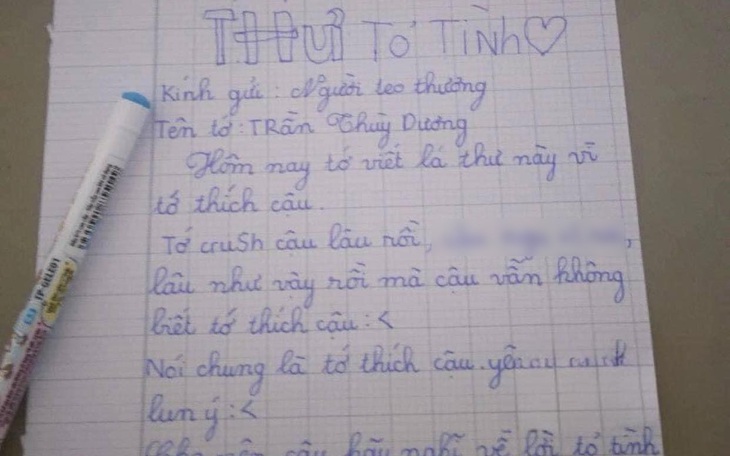 THƯ TỎ TÌNH
Kính gửi: Người teo thương
Tên tớ: TRần Thuỳ Dương
Hôm nay tớ viết lá thư này vì
tớ thích cậu.
Tớ cruSh cậu lâu rồi,
lâu như vậy rồi mà cậu vẫn không
biết tớ thích cậu :<
Nói chung là tớ thích cậu. yêu
lun ý :<
cậu hãy nghĩ về lời tỏ tình
TP-GELE01